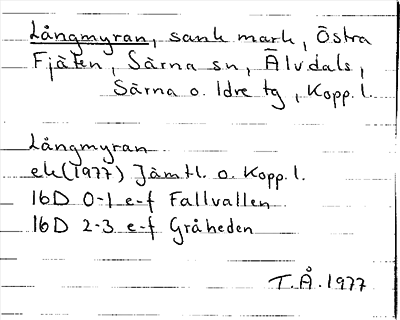 Långmyran, sank mark, Östra
Fjäten, Särna sn, Älvdals,
Särna o. Idre tg, Kopp. l.
Långmyran
ek (1977) Jämtl. o. Kopp. l.
16D 0-1 e-f Fallvallen
16D 2-3 e-f Gråheden
T.Å. 1977